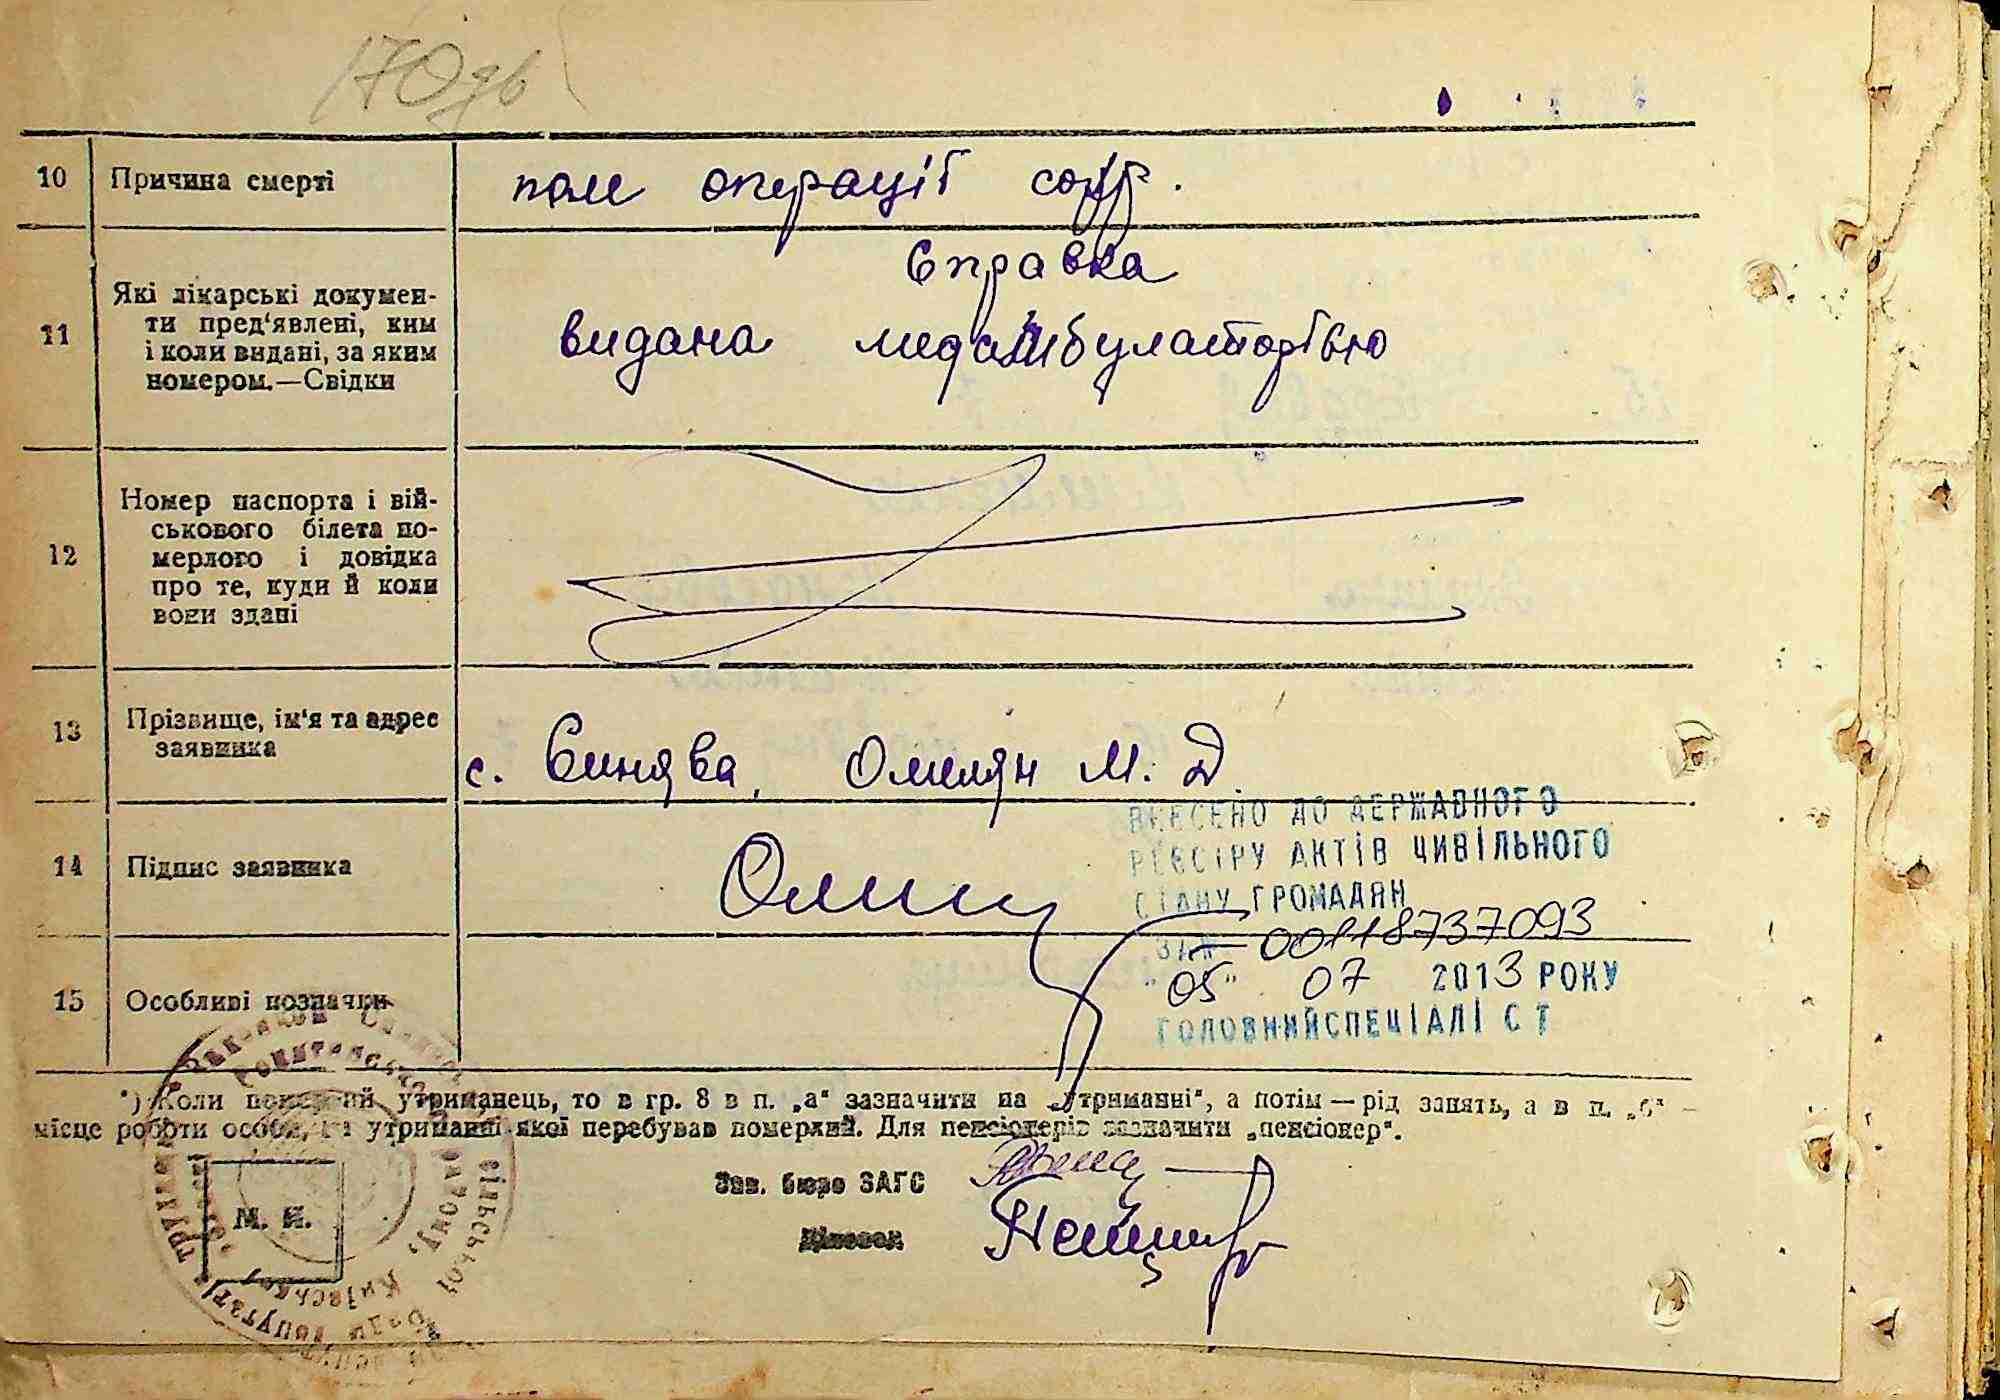 170 дв
10 Причина смерті
поле операції
11 Які лікарські докумен-
ти пред'явлені, ким
і коли видані, за яким
номером.—Свідки
Справка
видана медамбулаторією
12 Номер паспорта і вій-
ськового білета по-
мерлого і довідка
про те, куди й коли
вони здані
13 Прізвище, ім'я та адрес
заявника
с. Синява, Омелян М. Д.
14 Підпис заявника
15 Особливі позначки
ВНЕСЕНО ДО ДЕРЖАВНОГО
РЕЄСТРУ АКТІВ ЦИВІЛЬНОГО
СТАНУ ГРОМАДЯН
ЗА № 00118737093
"05" 07 2013 РОКУ
ГОЛОВНИЙ СПЕЦІАЛІСТ
*) Коли померлий утриманець, то в гр. 8 в п. „а" зазначити на „утриманні", а потім — рід занять, а в п. „б" —
місце роботи особи, на утриманні якої перебував померлий. Для пенсіонерів зазначити „пенсіонер".
Зав. бюро ЗАГС
Діловод
М. П.